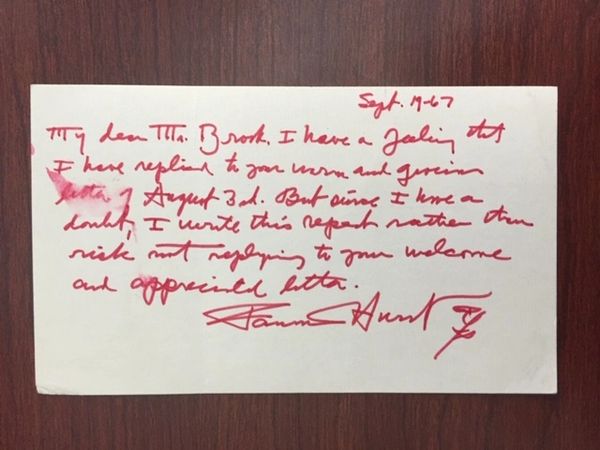 Sept. 19-67
My dear Mr. Brook, I have a feeling that
I have replied to your warm and gracious
letter of August 3d. But since I have a
doubt, I write this repeat rather than
risk not replying to your welcome
and appreciated letter.
Fannie Hurst